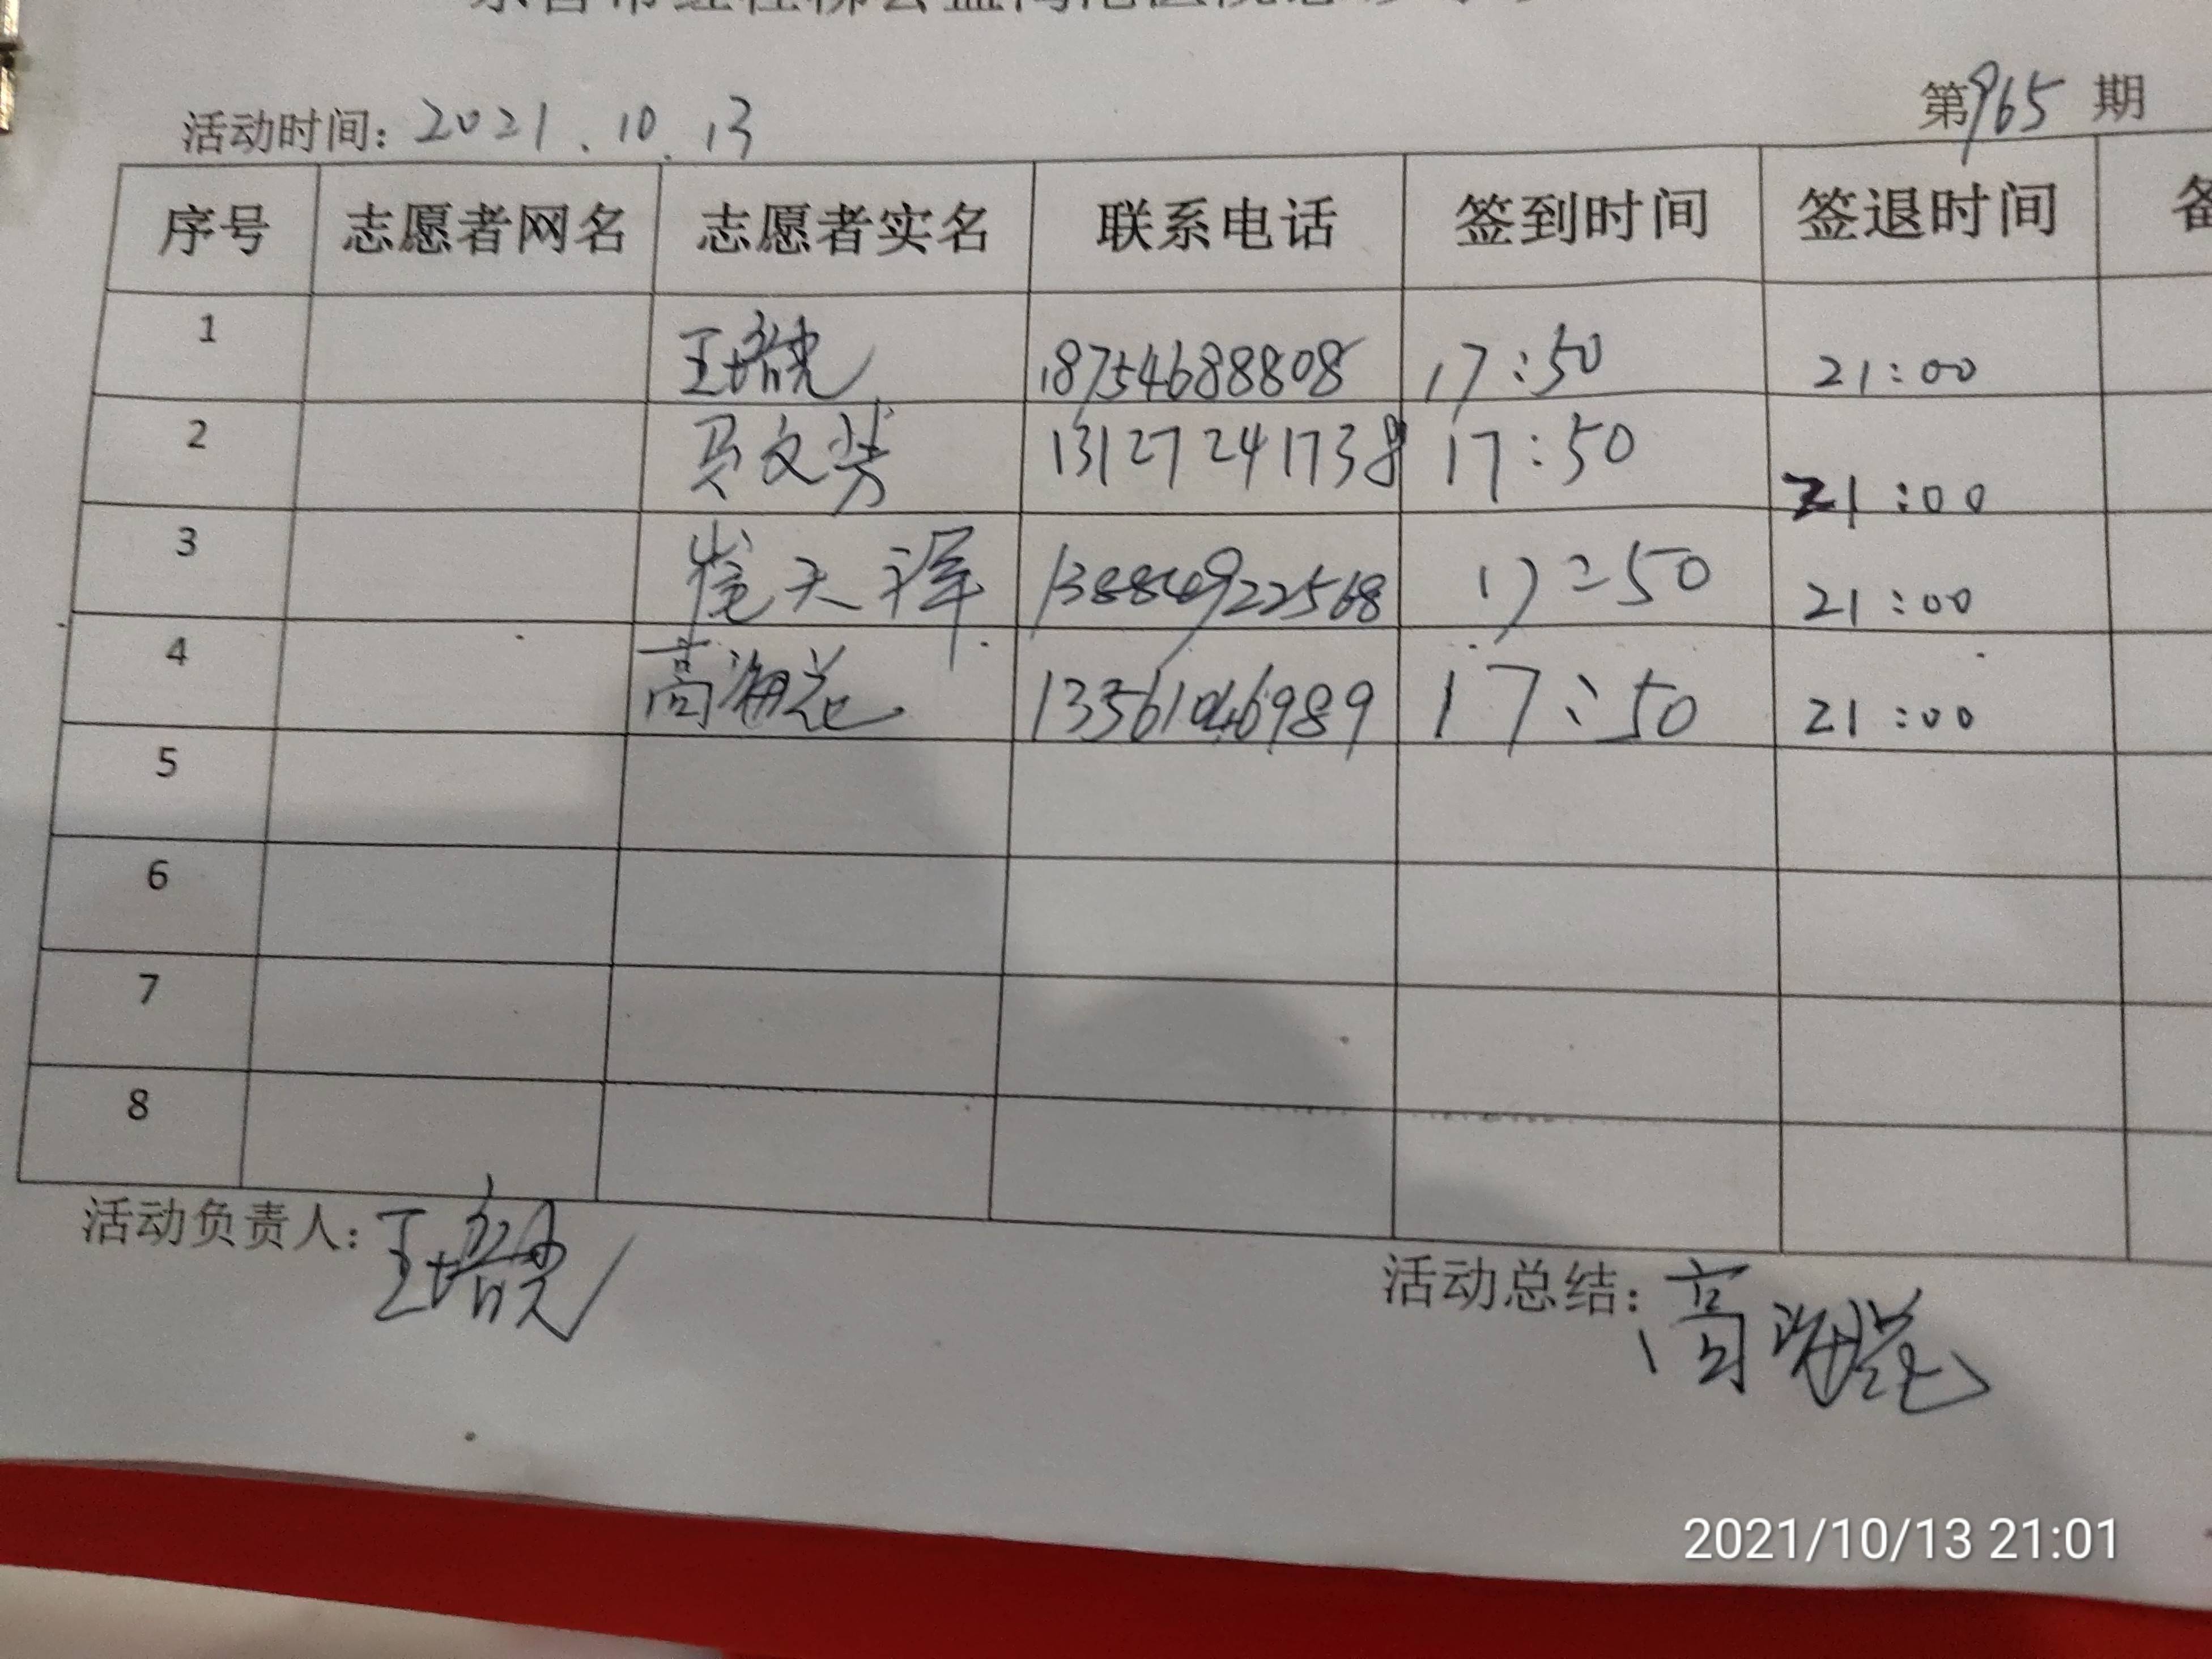 活动时间: 2021.10.13
第965期
序号 志愿者网名 志愿者实名 联系电话 签到时间 签退时间
1 18754688808 17:50 21:00
2 文芳 13127241738 17:50 21:00
3 崔天泽 17:50 21:00
4 高海花 13361046989 17:50 21:00
5
6
7
8
活动负责人:
活动总结: 高海花
2021/10/13 21:01